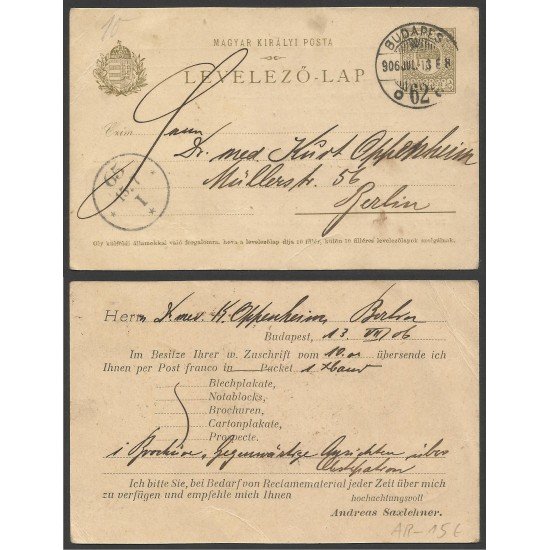 10
MAGYAR KIRÁLYI POSTA
LEVELEZŐ-LAP
BUDAPEST
906 JUL. 13
62
Czim:
Herrn
Dr. med Kurt Oppenheim
Müllerstr. 56
Berlin
Oly külföldi államokkal való forgalomra, hova a levelezőlap díja 10 fillér, külön 10 filléres levelezőlapok szolgálnak.
Herrn Dr med. K. Oppenheim, Berlin
Budapest, 13 VII/06
Im Besitze Ihrer w. Zuschrift vom 10. cr übersende ich
Ihnen per Post franco in Packet 1
Blechplakate,
Notablocks,
Brochuren,
Cartonplakate,
Prospecte.
1 Brochüre, Gegenwärtige Ansichten über
Obstipation
Ich bitte Sie, bei Bedarf von Reclamematerial jeder Zeit über mich
zu verfügen und empfehle mich Ihnen
hochachtungsvoll
Andreas Saxlehner.
AB-15€